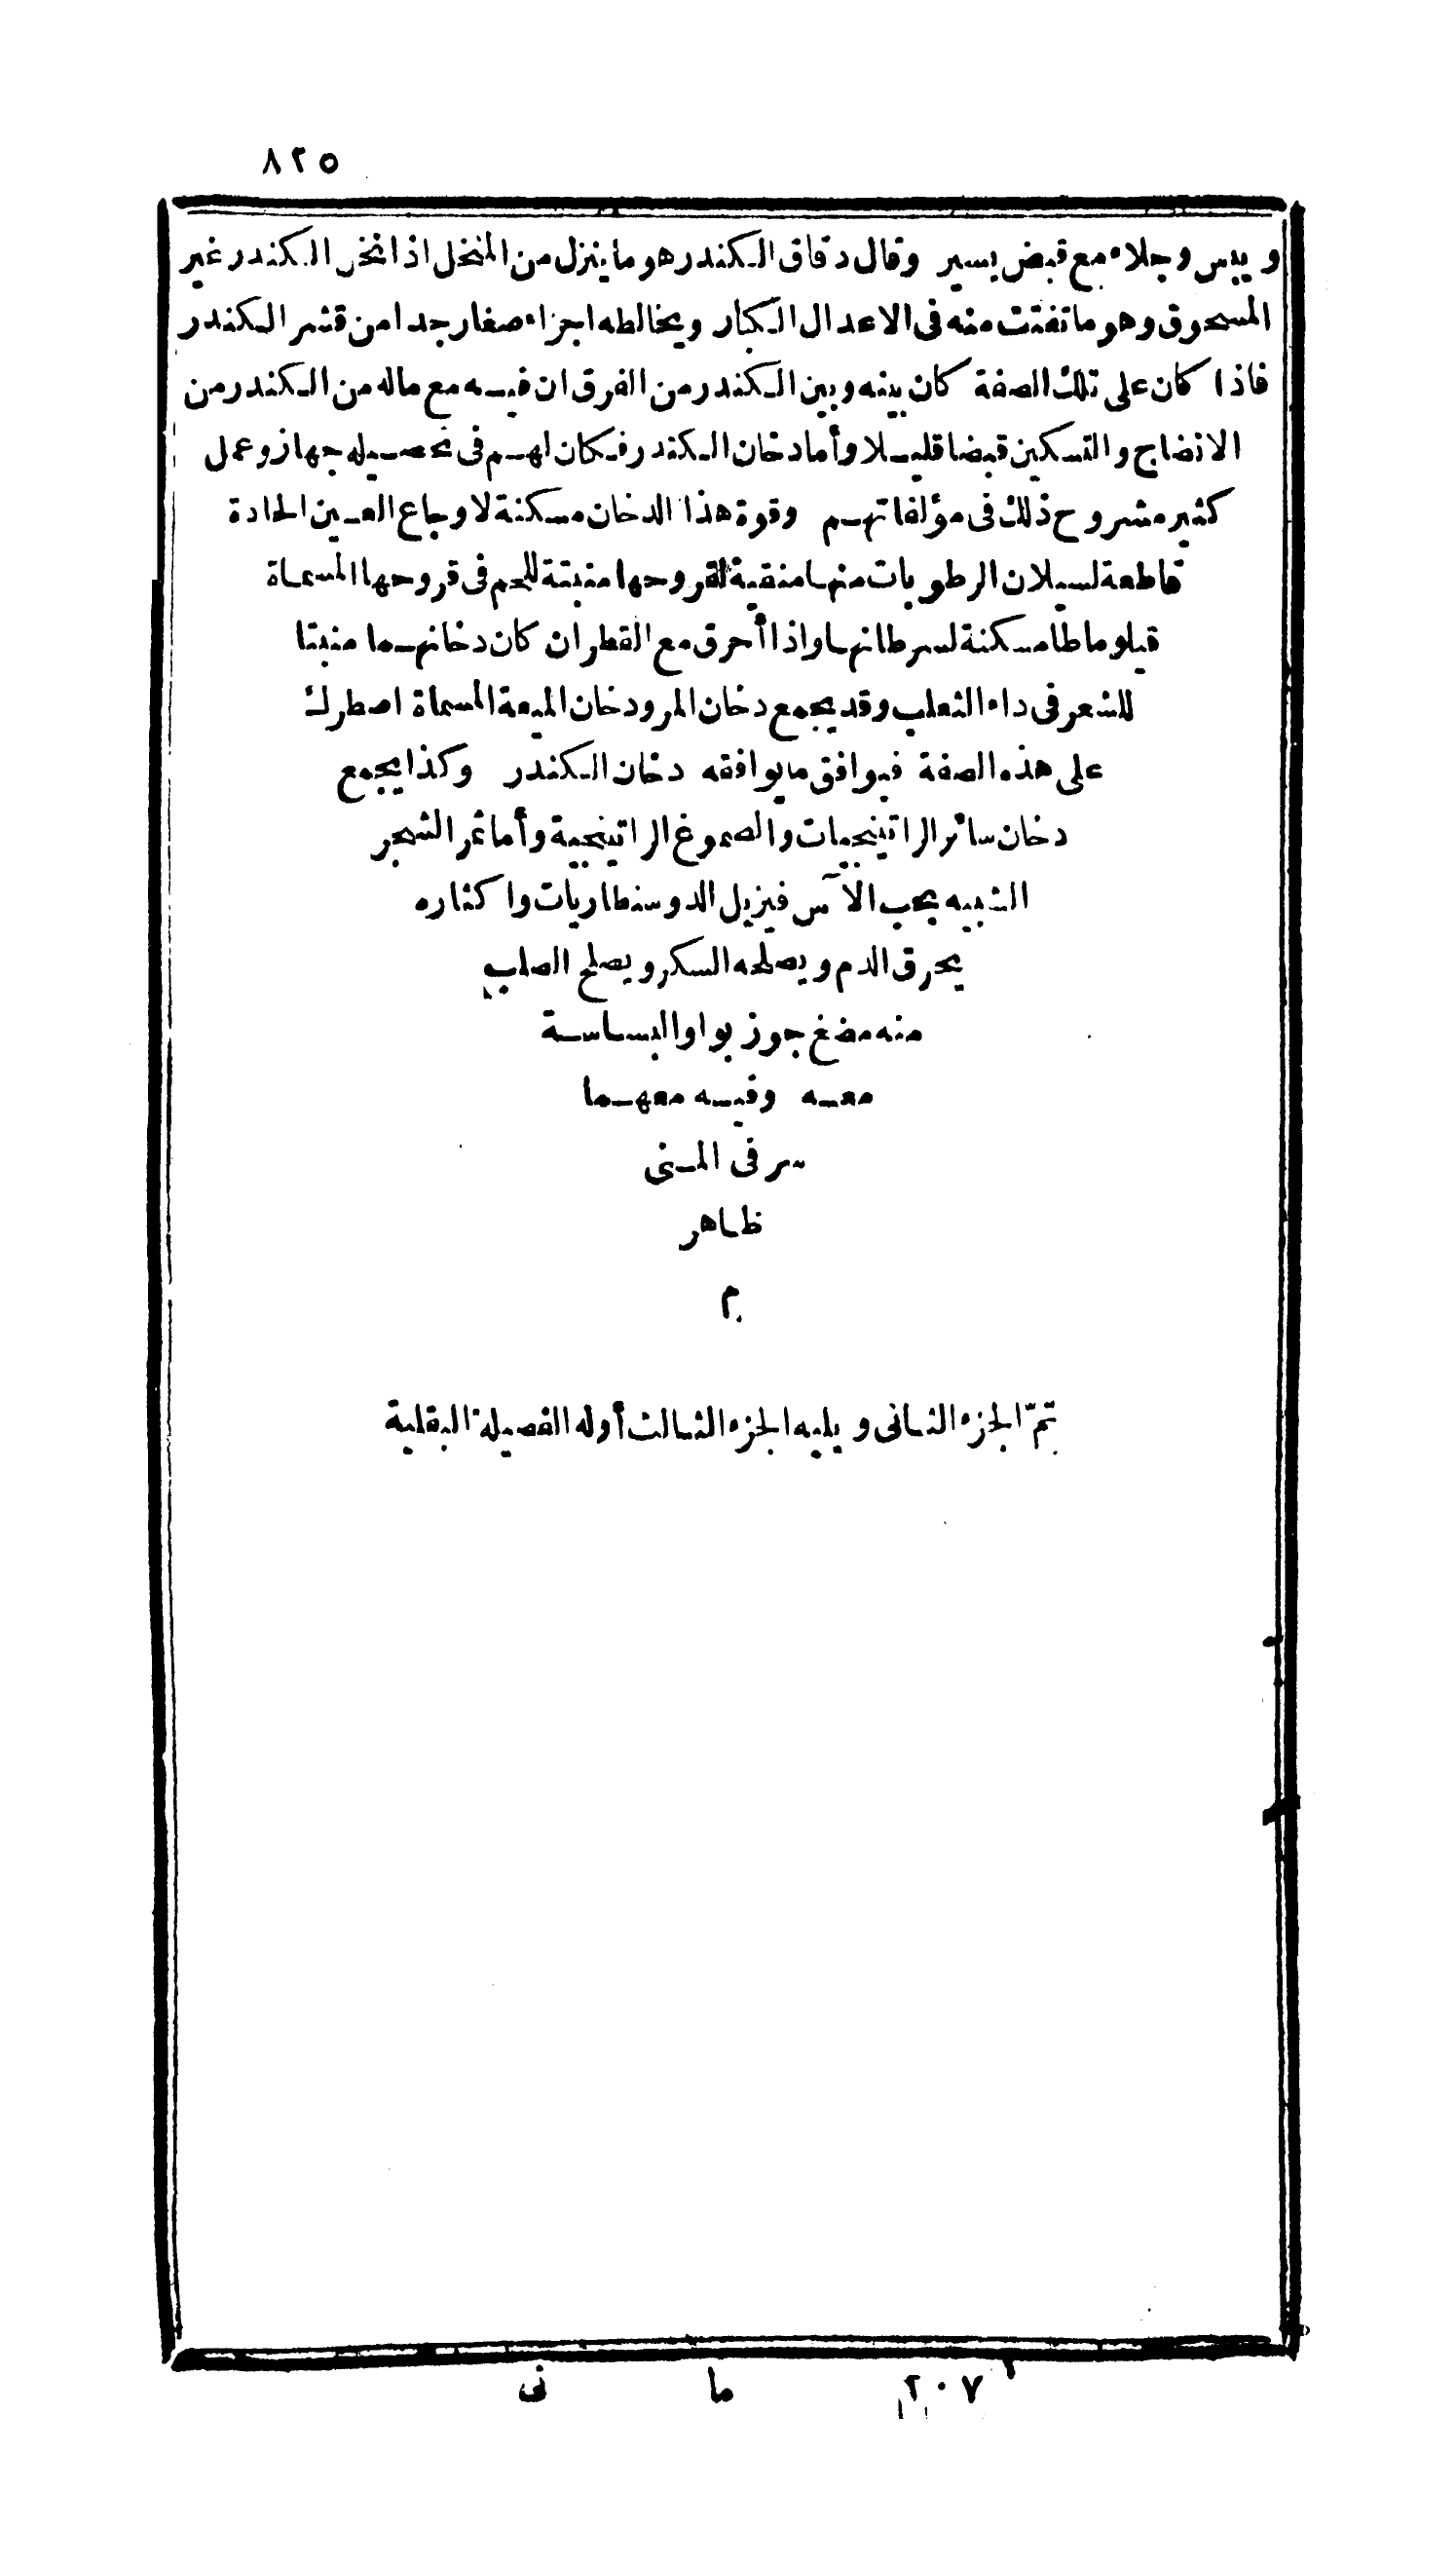 ٨٢٥
ويبس وجلاء مع قبض يسير وقال دقاق الكندر هو ما ينزل من المنخل اذا نخل الكندر غير
المسحوق وهو ما تفتت منه فى الاعدال الكبار ويخالطه اجزاء صغار جدا من قشر الكندر
فاذا كان على تلك الصفة كان بينه وبين الكندر من الفرق ان فيه مع ماله من الكندر من
الانضاج والتسكين قبضا قليلا وأما دخان الكندر فكان لهم فى تحصيله جهاز وعمل
كثير مشروح ذلك فى مؤلفاتهم وقوة هذا الدخان مسكنة لاوجاع العين الحادة
قاطعة لسيلان الرطوبات منها منقية لقروحها منبتة للحم فى قروحها المسماة
قيلوماطا مسكنة لسرطانها واذا أحرق مع القطران كان دخانهما منبتا
للشعر فى داء الثعلب وقد يجمع دخان المر ودخان الميعة المسماة اصطرك
على هذه الصفة فيوافق ما يوافقه دخان الكندر وكذا يجمع
دخان سائر الراتينجيات والصموغ الراتينجية وأما ثمر الشجر
الشبيه بحب الآس فيزيل الدوسنطاريات واكثاره
يحرق الدم ويصلحه السكر ويصلح الصلب
منه مضغ جوز بوا والبساسة
معه وفيه معهما
سر فى المنى
ظاهر
م
تمّ الجزء الثانى ويليه الجزء الثالث أوله الفصيلة البقلية
٢٠٧ ما نى